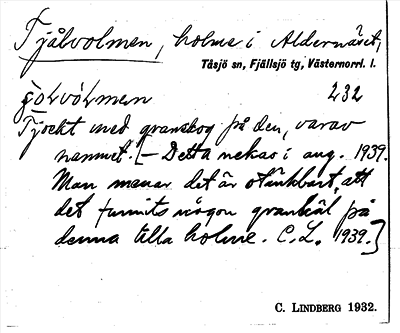 Tjålvolmen, holme i Aldernäset,
Tåsjö sn, Fjällsjö tg, Västernorrl. l.
232
Tjockt med granskog på den, varav
namnet. [— Detta nekas i aug. 1939.
Man menar det är otänkbart, att
det funnits någon granskål på
denna lilla holme. C. L. 1939.]
C. LINDBERG 1932.